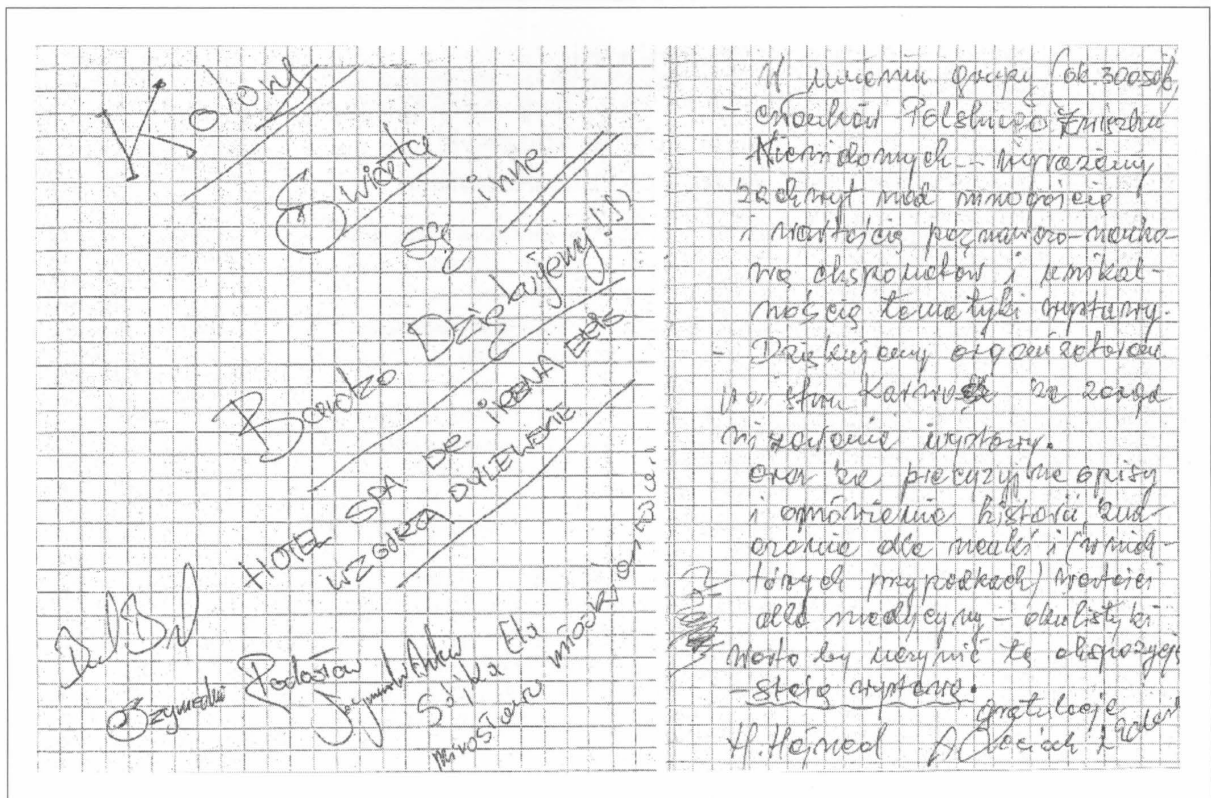 Kolory
Święta
są inne
Bardzo Dziękujemy!!!
HOTEL SPA DR IRENA ERIS
WZGÓRZA DYLEWSKIE
Podastów
Szymański
Sójka Ela
Mirosława
W imieniu grupy (ok. 30 osób)
- członków Polskiego Związku
Niewidomych - wyrażamy
zachwyt nad mnogością
i wartością poznawczo-nauko-
wą eksponatów i unikal-
nością tematyki wystawy.
- Dziękujemy organizatorom
państwu za zorga
nizowanie wystawy.
oraz za precyzyjne opisy
i omówienia historii, zna-
czenia dla nauki i (w niek-
tórych przypadkach) wartości
dla medycyny - okulistyki
Warto by uczynić tę ekspozycję
- stałą wystawą.
gratulacje
H. Hejnad